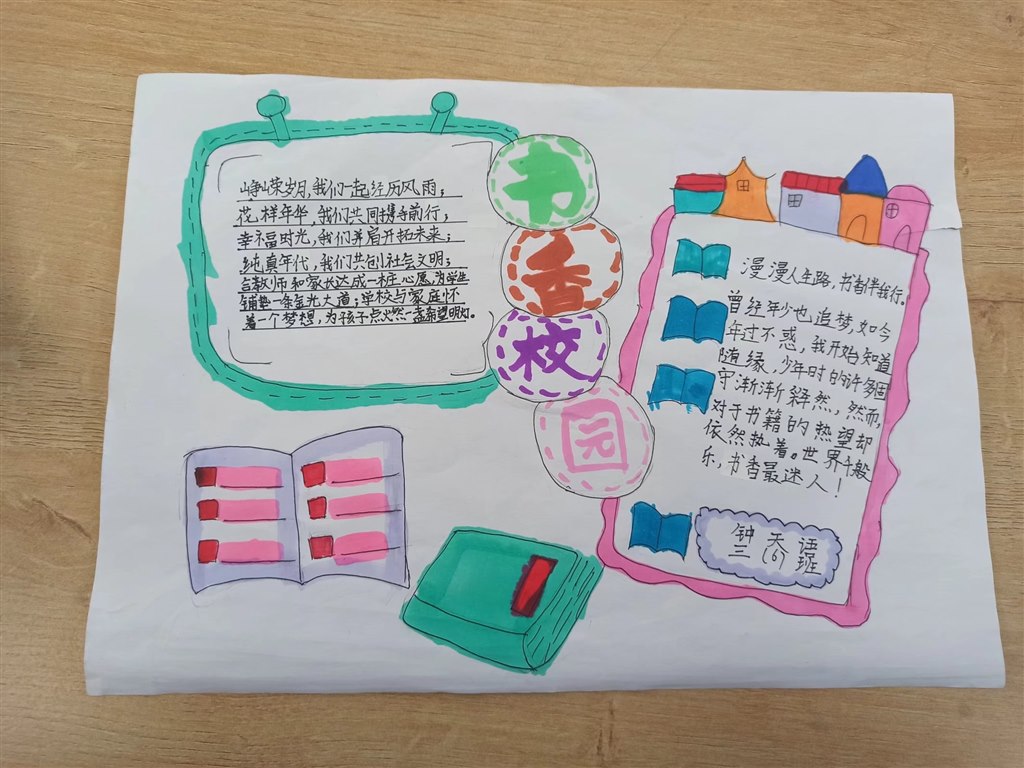 峥嵘岁月,我们一起经历风雨;
花样年华,我们共同携手前行;
幸福时光,我们并肩开拓未来;
纯真年代,我们共创社会文明;
合教师和家长达成一桩心愿,为学生
铺垫一条星光大道;学校与家庭怀
着一个梦想,为孩子点火然一盏希望明灯。
书
香
校
园
漫漫人生路,书香伴我行。
曾经年少也追梦,如今
年过不惑,我开始知道
随缘,少年时的许多固
守渐渐释然,然而,
对于书籍的热望却
依然执着。世界千般
乐,书香最迷人!
钟天语
三(6)班